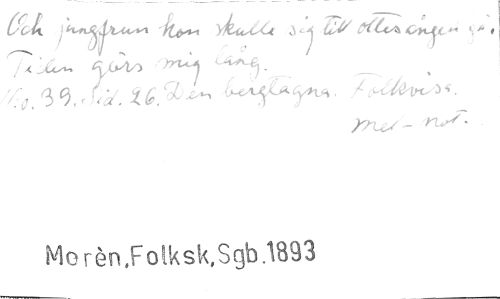 Och jungfrun hon skulle sig till ottesången gå.
Tiden görs mig lång.
No. 39. Sid. 26. Den bergtagna. Folkvisa.
mel-not.
Morèn,Folksk,Sgb.1893